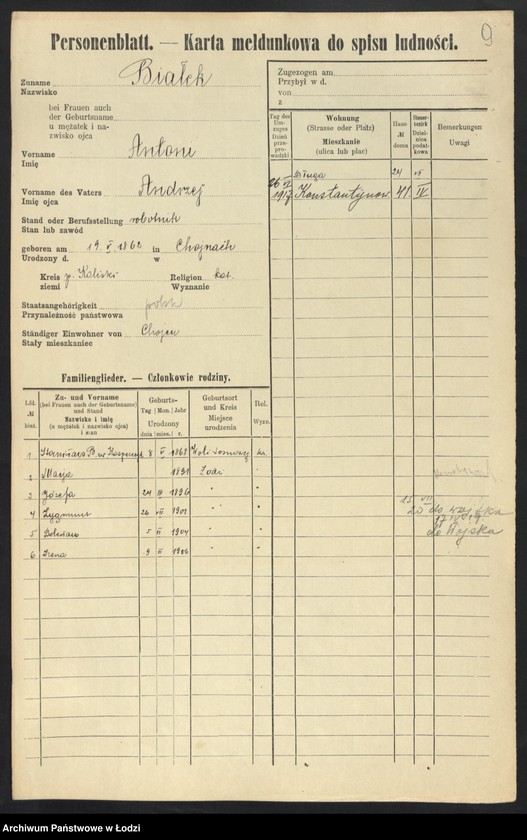 9
Personenblatt. — Karta meldunkowa do spisu ludności.
Zuname Białek
Nazwisko
bei Frauen auch
der Geburtsname
u mężatek i na-
zwisko ojca
Vorname Antoni
Imię
Vorname des Vaters Andrzej
Imię ojca
Stand oder Berufsstellung robotnik
Stan lub zawód
geboren am 19. V. 1862 in Chojnach
Urodzony d. w
Kreis g. Kaliska Religion kat.
ziemi Wyznanie
Staatsangehörigkeit polsk
Przynależność państwowa
Ständiger Einwohner von Chojen
Stały mieszkaniec
Zugezogen am
Przybył w d.
von
z
Tag des Um-zuges Dzień prze-pro-wadzki
Wohnung (Strasse oder Platz) Mieszkanie (ulica lub plac)
Haus № domu
Steuer-bezirk Dziel-nica podat-kowa
Bemerkungen Uwagi
Długa 24 VI
26 VI 1917 Konstantynow. 41 IV
Familienglieder. — Członkowie rodziny.
Lfd. № bież.
Zu- und Vorname (bei Frauen auch der Geburtsname) und Stand Nazwisko i imię (u mężatek i nazwisko ojca) i stan
Geburts- Tag Mon. Jahr Urodzony dnia mies. r.
Geburtsort und Kreis Miejsce urodzenia
Rel. Wyzn.
1 B. 8 V 1868 Woli
2 Marja 1891 Łodzi "
3 Józefa 24 III 1896 " "
4 Zygmunt 26 VII 1901 " " 15 VII 20 do wojska
5 Bolesław 5 II 1904 " " do Wojska
6 Irena 9 II 1906 " "
Archiwum Państwowe w Łodzi